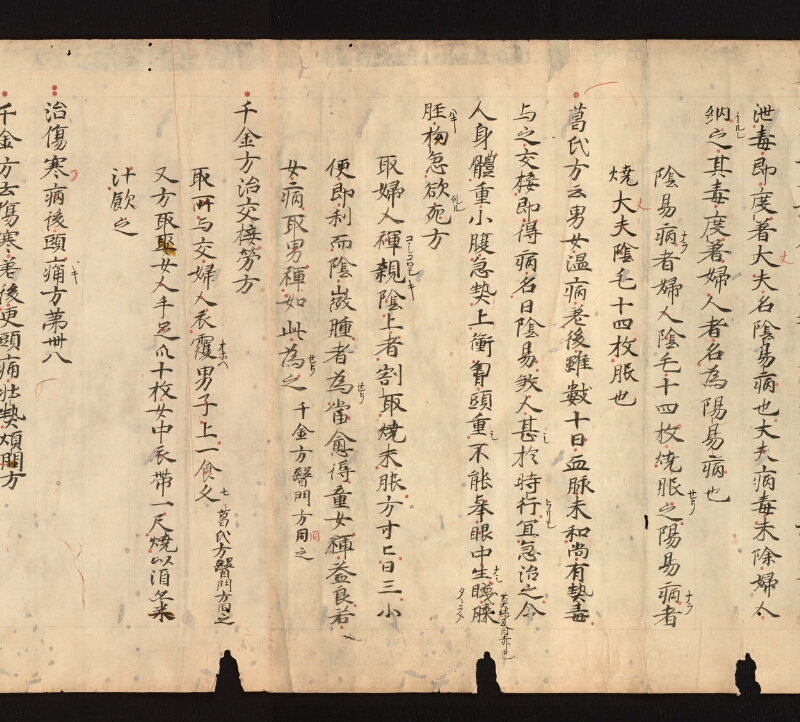 泄毒即度著大夫名陰易病也大夫病毒未除婦人
納之其毒度著婦人者名為陽易病也
陰易病者婦人陰毛十四枚燒服之陽易病者
燒大夫陰毛十四枚服也
葛氏方云男女溫病差後雖數十日血脉未和尚有熱毒
与之交接即得病名曰陰易煞人甚於時行宜急治之令
人身體重小腹急熱上衝胷頭重不能舉眼中生䁾
胫拘急欲死方
取婦人褌親陰上者割取燒末服方寸匕日三小
便即利而陰微腫者為當愈得童女褌益良若
女病取男褌如此為之 千金方醫門方同之
千金方治交接勞方
取所与交婦人衣覆男子上一食久 葛氏方醫門方同之
又方取女人手足爪十枚女中衣帶一尺燒以酒若米
汁飲之
治傷寒病後頭痛方第卅八
千金方云傷寒差後更頭痛壯熱煩悶方